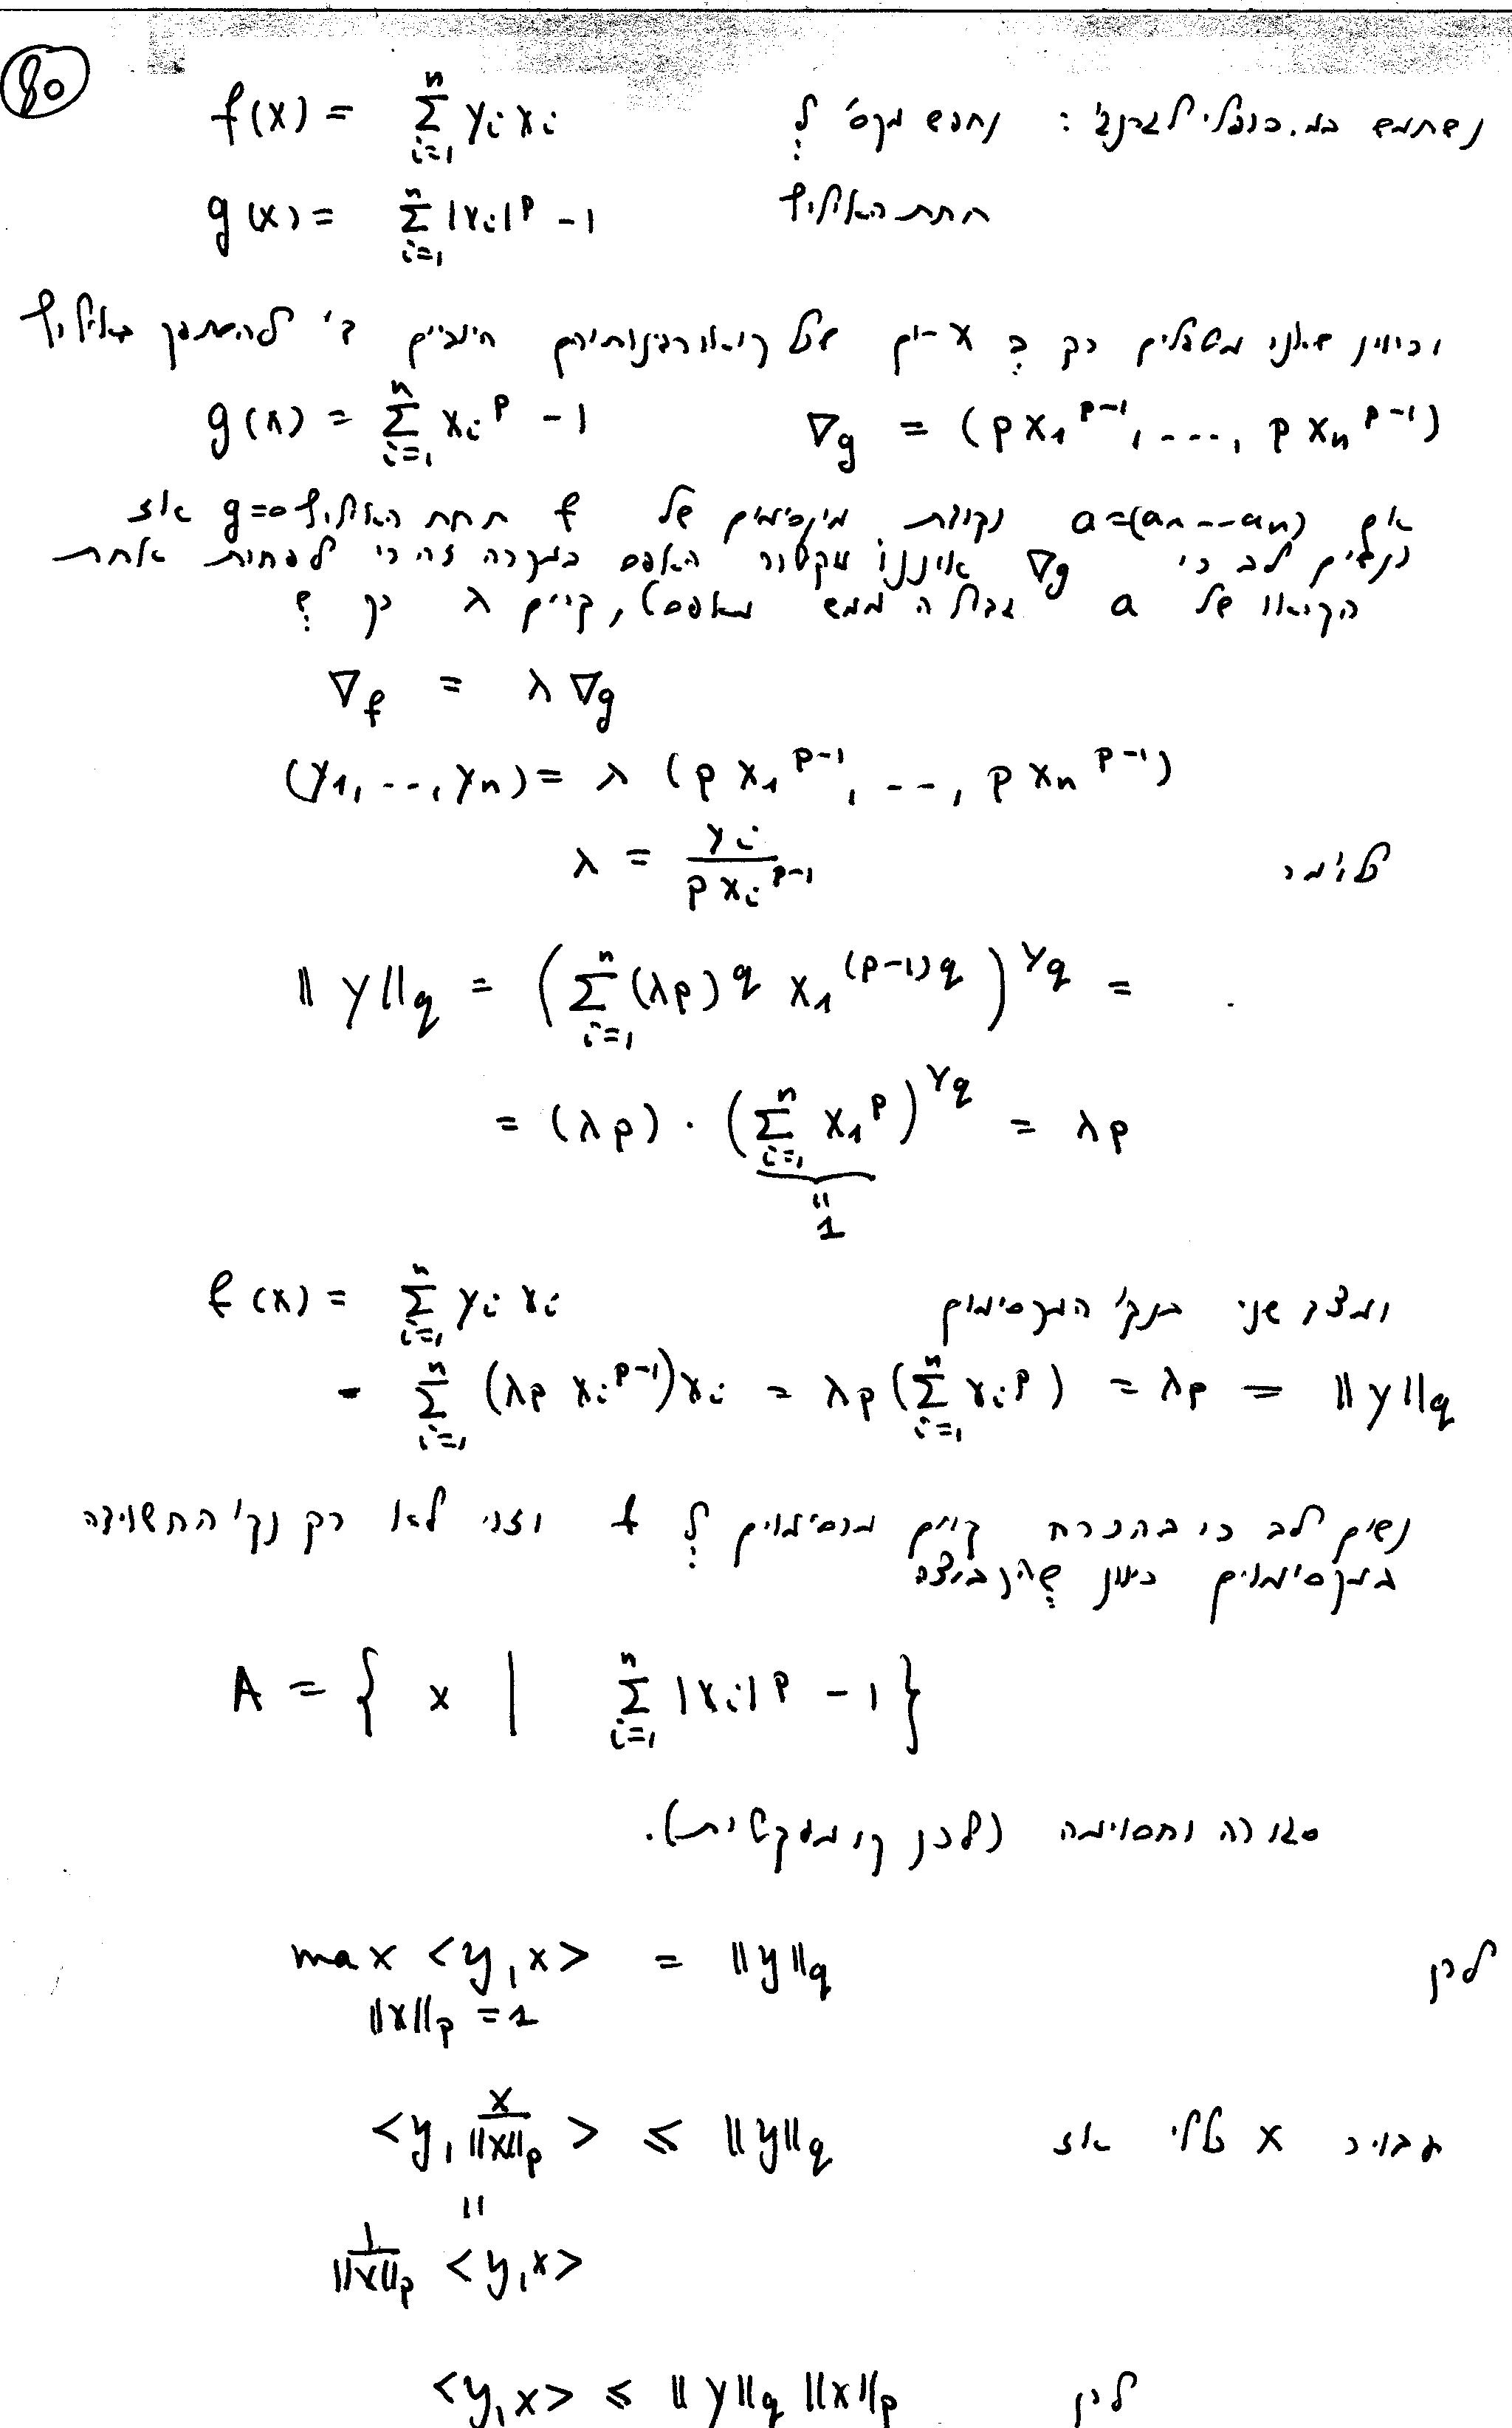 80
נשתמש בכופלי לגרנג': נחפש מקס' ל f(x) = \sum_{i=1}^{n} y_i x_i
תחת האילוץ g(x) = \sum_{i=1}^{n} |x_i|^p - 1
וכיוון שאנו מסתכלים רק ב x-ים של קואורדינטותיהם חיוביים להסתפק באילוץ
g(x) = \sum_{i=1}^{n} x_i^p - 1 \nabla g = (p x_1^{p-1}, ..., p x_n^{p-1})
אם a=(a_n---a_n) נקודת מקסימום של f תחת האילוץ g=0 אז
נשים לב כי \nabla g איננו וקטור האפס במקרה זה כי לפחות אחת
הקואו של a גדולה ממש מאפס), קיים λ כך ש
\nabla f = λ \nabla g
(y_1, ..., y_n) = λ (p x_1^{p-1}, ..., p x_n^{p-1})
כלומר λ = \frac{y_i}{p x_i^{p-1}}
||y||_q = (\sum_{i=1}^{n} (λp)^q x_1^{(p-1)q})^{1/q} =
= (λp) · (\sum_{i=1}^{n} x_1^p)^{1/q} = λp
" 1
ומצד שני בנק' המקסימום f(x) = \sum_{i=1}^{n} y_i x_i
= \sum_{i=1}^{n} (λp x_i^{p-1}) x_i = λp (\sum_{i=1}^{n} x_i^p) = λp = ||y||_q
נשים לב כי בהכרח קיים מקסימום ל f וזוהי לא רק נק' החשודה
במקסימום כיוון שהקבוצה
A = { x | \sum_{i=1}^{n} |x_i|^p - 1 }
סגורה וחסומה (לכן קומפקטית).
לכן max <y, x> = ||y||_q
||x||_p = 1
עבור x כללי אז <y, \frac{x}{||x||_p}> ≤ ||y||_q
"
\frac{1}{||x||_p} <y, x>
לכן <y, x> ≤ ||y||_q ||x||_p